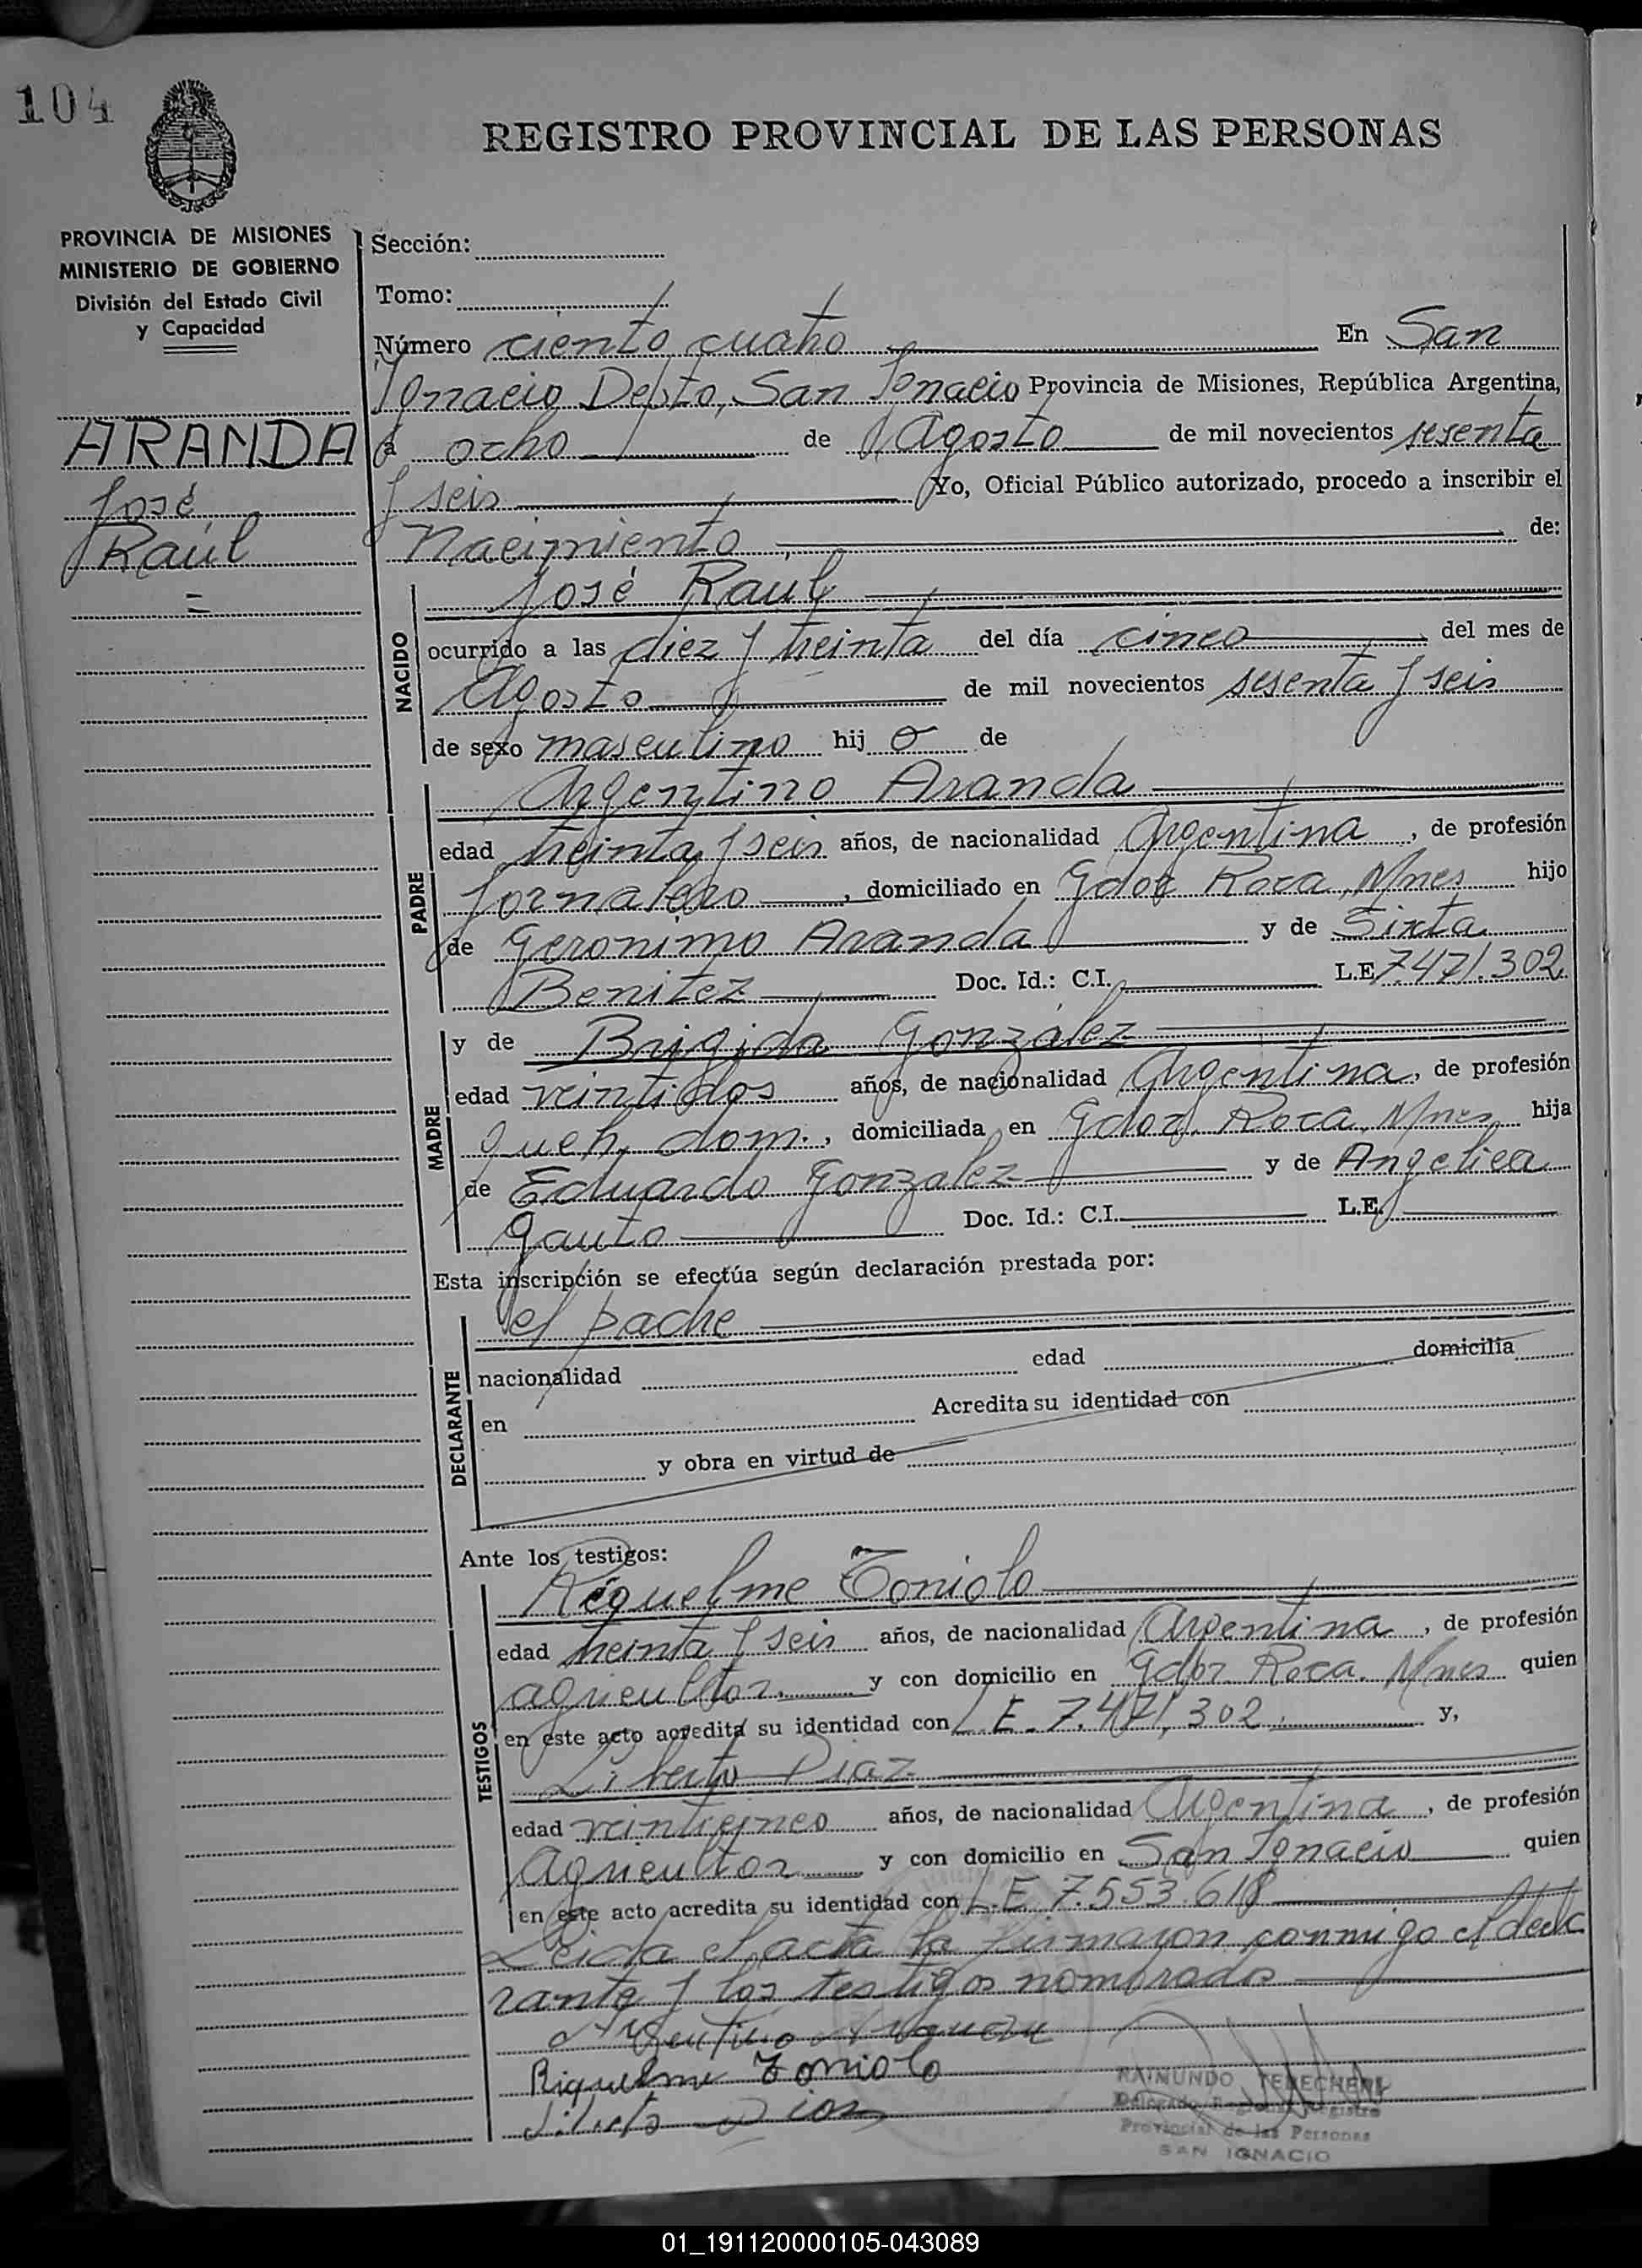 104
REGISTRO PROVINCIAL DE LAS PERSONAS
PROVINCIA DE MISIONES
MINISTERIO DE GOBIERNO
División del Estado Civil
y Capacidad
ARANDA
José
Raúl
=
Sección:
Tomo:
Número ciento cuatro En San
Ignacio Depto, San Ignacio Provincia de Misiones, República Argentina,
a ocho de Agosto de mil novecientos sesenta
y seis Yo, Oficial Público autorizado, procedo a inscribir el
Nacimiento de:
NACIDO
José Raúl
ocurrido a las diez y treinta del día cinco del mes de
Agosto de mil novecientos sesenta y seis
de sexo masculino hij o de
PADRE
Argentino Aranda
edad treinta y seis años, de nacionalidad Argentina, de profesión
Jornalero, domiciliado en Gdor Roca, Mnes hijo
de Geronimo Aranda y de Sixta
Benitez Doc. Id.: C.I. L.E 7.471.302
MADRE
y de Brigida Gonzalez
edad veintidos años, de nacionalidad Argentina, de profesión
queh. dom., domiciliada en Gdor. Roca, Mnes hija
de Eduardo Gonzalez y de Angelica
Gauto Doc. Id.: C.I. L.E.
Esta inscripción se efectúa según declaración prestada por:
DECLARANTE
el padre
nacionalidad edad domicilia
en Acredita su identidad con
y obra en virtud de
Ante los testigos:
TESTIGOS
Riquelme Toniolo
edad treinta y seis años, de nacionalidad Argentina, de profesión
agricultor. y con domicilio en Gdor Roca. Mnes quien
en este acto acredita su identidad con L.E. 7.471.302 y,
Liberto Diaz
edad veinticinco años, de nacionalidad Argentina, de profesión
Agricultor y con domicilio en San Ignacio quien
en este acto acredita su identidad con L.E 7.553.618
Leida el acta la firmaron conmigo el decla
rante y los testigos nombrados
Argentino
Riquelme Toniolo
Liberto Dias
RAIMUNDO
Provincial de las Personas
SAN IGNACIO
01_191120000105-043089